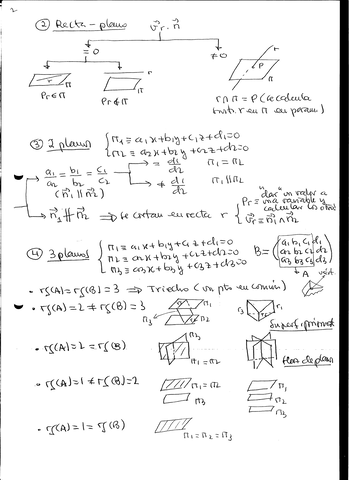 ② Recta - plano v⃗r · n⃗
= 0
≠ 0
r
π
Pr ∈ π
r
π
Pr ∉ π
r
P
π
r ∩ π = P (se calcula
③ 2 planos { π1 ≡ a1x + b1y + c1z + d1 = 0
π2 ≡ a2x + b2y + c2z + d2 = 0
a1/a2 = b1/b2 = c1/c2
(n⃗1 ∥ n⃗2)
= d1/d2 π1 = π2
≠ d1/d2 π1 ∥ π2
n⃗1 ∦ n⃗2 ⇒ se cortan en recta r { Pr = "dar" un valor a
una variable y
calcular las otras
v⃗r = n⃗1 ∧ n⃗2
④ 3 planos { π1 ≡ a1x + b1y + c1z + d1 = 0
π2 ≡ a2x + b2y + c2z + d2 = 0
π3 ≡ a3x + b3y + c3z + d3 = 0
B = ( a1 b1 c1 d1
a2 b2 c2 d2
a3 b3 c3 d3 )
A
• rg(A) = rg(B) = 3 ⇒ Triedro (un pto en común)
• rg(A) = 2 ≠ rg(B) = 3
π1
π2
π3
r1
r3
Superf. prismát
• rg(A) = 2 = rg(B)
π3
π1 = π2
Haz de planos
• rg(A) = 1 ≠ rg(B) = 2
π1 = π2
π3
π1
π2
π3
• rg(A) = 1 = rg(B)
π1 = π2 = π3